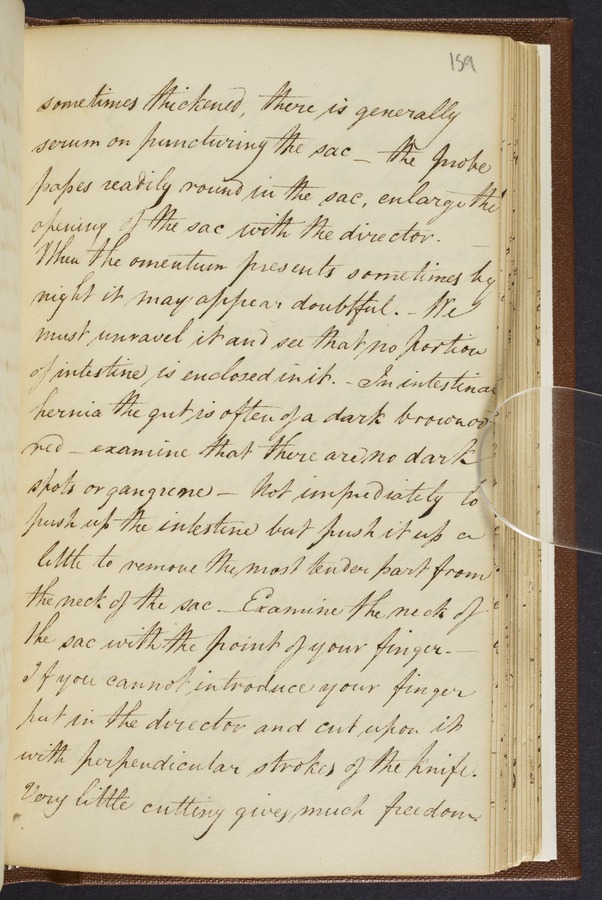 159
sometimes thickened, there is generally
serum on puncturing the sac – the probe
passes readily round in the sac, enlarge the
opening of the sac with the director.
When the omentum presents sometimes by
night it may appear doubtful. – We
must unravel it and see that no portion
of intestine is enclosed in it. – In intestinal
hernia the gut is often of a dark brown or
red – examine that there are no dark
spots or gangrene – Not immediately to
push up the intestine but push it up a
little to remove the most tender part from
the neck of the sac – Examine the neck of
the sac with the point of your finger. –
If you cannot introduce your finger
put in the director and cut upon it
with perpendicular strokes of the knife.
Very little cutting gives much freedom